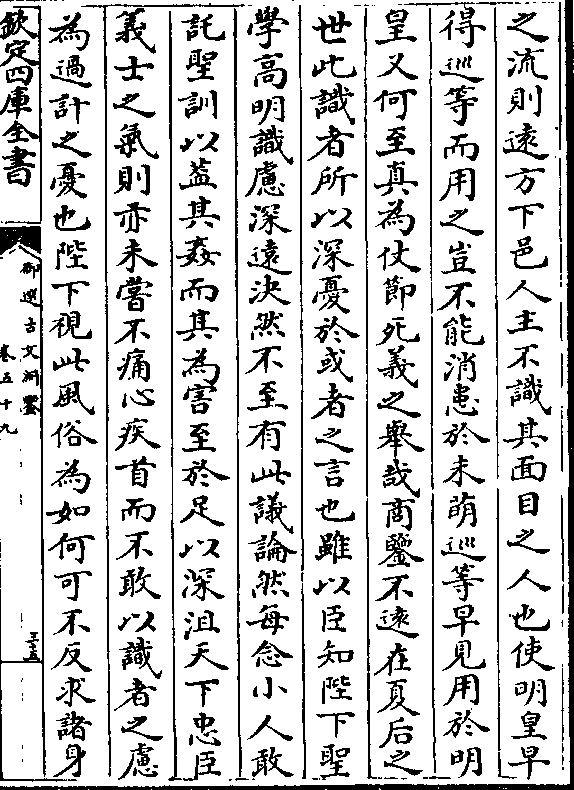 之流則遠方下邑人主不識其面目之人也使明皇早
得巡等而用之豈不能消患於未萌巡等早見用於明
皇又何至真為仗節死義之舉哉商鑒不遠在夏后之
世此識者所以深憂於或者之言也雖以臣知陛下聖
學高明識慮深遠決然不至有此議論然每念小人敢
託聖訓以蓋其姦而其為害至於足以深沮天下忠臣
義士之氣則亦未嘗不痛心疾首而不敢以識者之慮
為過計之憂也陛下視此風俗為如何可不反求諸身
欽定四庫全書
御選古文淵鑒
卷五十九
三十五